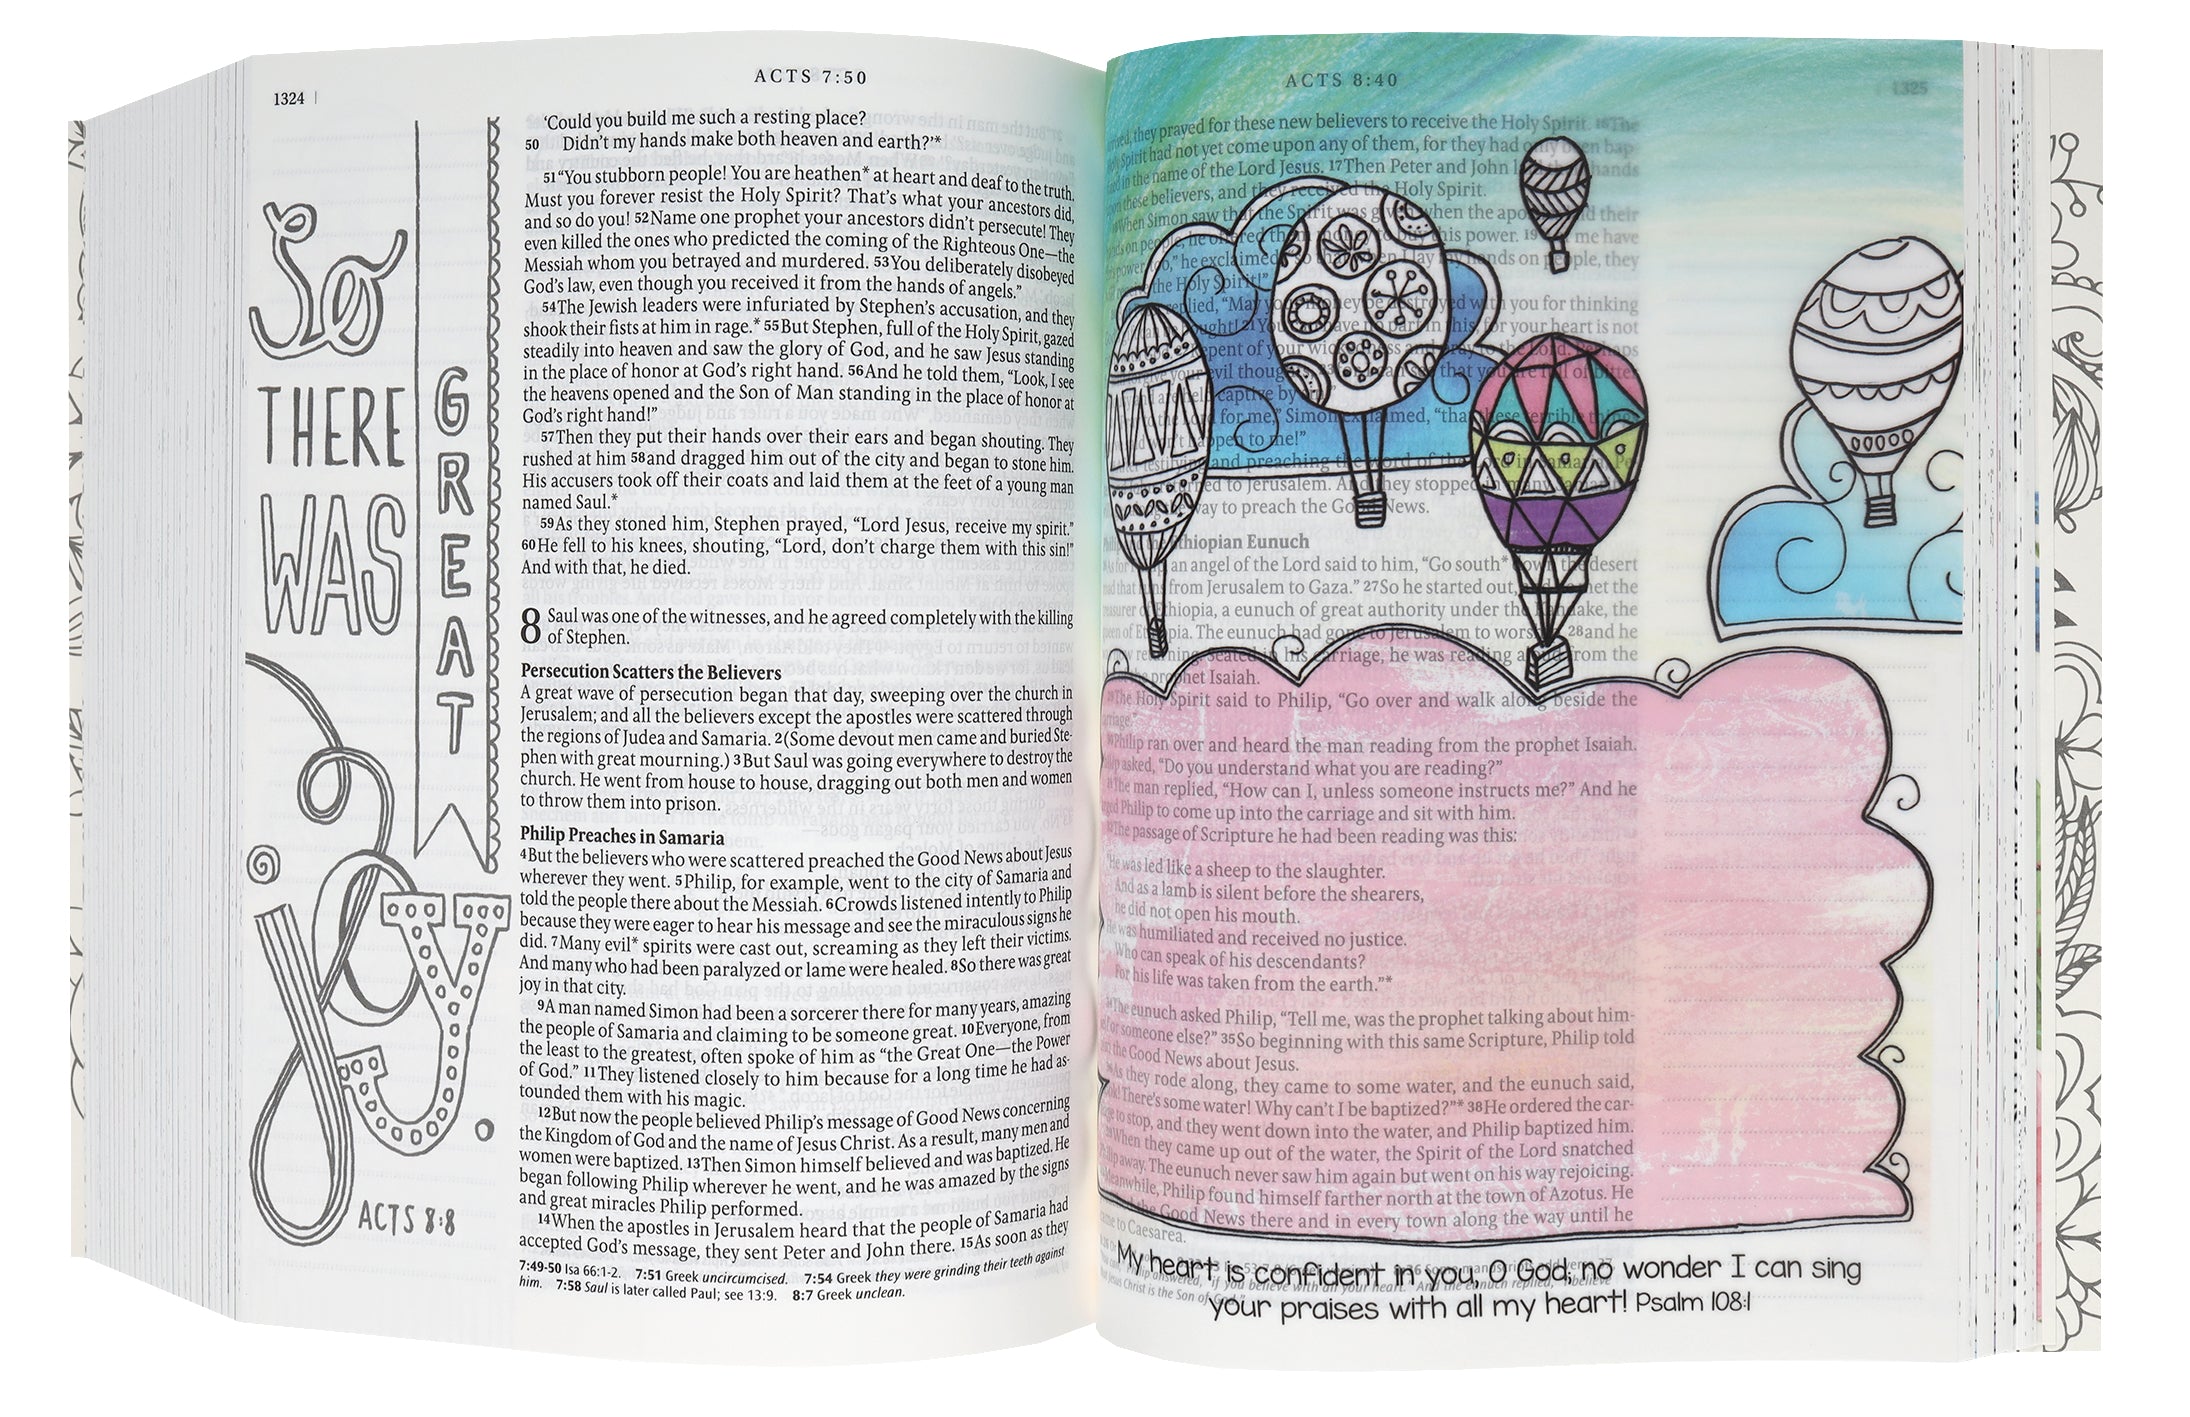 1324 |
ACTS 7:50
So
THERE
WAS
GREAT
joy.
ACTS 8:8
‘Could you build me such a resting place?
50 Didn’t my hands make both heaven and earth?’*
51“You stubborn people! You are heathen* at heart and deaf to the truth.
Must you forever resist the Holy Spirit? That’s what your ancestors did,
and so do you! 52Name one prophet your ancestors didn’t persecute! They
even killed the ones who predicted the coming of the Righteous One—the
Messiah whom you betrayed and murdered. 53You deliberately disobeyed
God’s law, even though you received it from the hands of angels.”
54The Jewish leaders were infuriated by Stephen’s accusation, and they
shook their fists at him in rage.* 55But Stephen, full of the Holy Spirit, gazed
steadily into heaven and saw the glory of God, and he saw Jesus standing
in the place of honor at God’s right hand. 56And he told them, “Look, I see
the heavens opened and the Son of Man standing in the place of honor at
God’s right hand!”
57Then they put their hands over their ears and began shouting. They
rushed at him 58and dragged him out of the city and began to stone him.
His accusers took off their coats and laid them at the feet of a young man
named Saul.*
59As they stoned him, Stephen prayed, “Lord Jesus, receive my spirit.”
60He fell to his knees, shouting, “Lord, don’t charge them with this sin!”
And with that, he died.
8 Saul was one of the witnesses, and he agreed completely with the killing
of Stephen.
Persecution Scatters the Believers
A great wave of persecution began that day, sweeping over the church in
Jerusalem; and all the believers except the apostles were scattered through
the regions of Judea and Samaria. 2(Some devout men came and buried Ste-
phen with great mourning.) 3But Saul was going everywhere to destroy the
church. He went from house to house, dragging out both men and women
to throw them into prison.
Philip Preaches in Samaria
4But the believers who were scattered preached the Good News about Jesus
wherever they went. 5Philip, for example, went to the city of Samaria and
told the people there about the Messiah. 6Crowds listened intently to Philip
because they were eager to hear his message and see the miraculous signs he
did. 7Many evil* spirits were cast out, screaming as they left their victims.
And many who had been paralyzed or lame were healed. 8So there was great
joy in that city.
9A man named Simon had been a sorcerer there for many years, amazing
the people of Samaria and claiming to be someone great. 10Everyone, from
the least to the greatest, often spoke of him as “the Great One—the Power
of God.” 11They listened closely to him because for a long time he had as-
tounded them with his magic.
12But now the people believed Philip’s message of Good News concerning
the Kingdom of God and the name of Jesus Christ. As a result, many men and
women were baptized. 13Then Simon himself believed and was baptized. He
began following Philip wherever he went, and he was amazed by the signs
and great miracles Philip performed.
14When the apostles in Jerusalem heard that the people of Samaria had
accepted God’s message, they sent Peter and John there. 15As soon as they
7:49-50 Isa 66:1-2. 7:51 Greek uncircumcised. 7:54 Greek they were grinding their teeth against
him. 7:58 Saul is later called Paul; see 13:9. 8:7 Greek unclean.
ACTS 8:40
1325
they prayed for these new believers to receive the Holy Spirit. 16The
Spirit had not yet come upon any of them, for they had only been bap-
in the name of the Lord Jesus. 17Then Peter and John hands
these believers, and they received the Holy Spirit.
When Simon saw that the Spirit was given when the their
on people, he offered them money to buy this power. 19 me have
power too,” he exclaimed, “so that when I lay my hands on people, they
the Holy Spirit!”
replied, “May your money be destroyed with you for thinking
bought! 21You have no part in this, for your heart is not
repent of your wickedness and pray to the Lord. Perhaps
forgive your evil thoughts, 23 I can see that you are full of bitter
are held captive by
the Lord for me,” Simon exclaimed, “that these terrible things
won’t happen to me!”
testifying and preaching the word of the Lord in Samaria, Pe-
to Jerusalem. And they stopped in many
way to preach the Good News.
Ethiopian Eunuch
an angel of the Lord said to him, “Go south* down the desert
road that runs from Jerusalem to Gaza.” 27So he started out, met the
treasurer of Ethiopia, a eunuch of great authority under the Kandake, the
queen of Ethiopia. The eunuch had gone to Jerusalem to worship, 28and he
returning. Seated in his carriage, he was reading aloud from the
prophet Isaiah.
29The Holy Spirit said to Philip, “Go over and walk along beside the
carriage.”
Philip ran over and heard the man reading from the prophet Isaiah.
asked, “Do you understand what you are reading?”
The man replied, “How can I, unless someone instructs me?” And he
Philip to come up into the carriage and sit with him.
The passage of Scripture he had been reading was this:
“He was led like a sheep to the slaughter.
And as a lamb is silent before the shearers,
he did not open his mouth.
He was humiliated and received no justice.
Who can speak of his descendants?
For his life was taken from the earth.”*
The eunuch asked Philip, “Tell me, was the prophet talking about him-
or someone else?” 35So beginning with this same Scripture, Philip told
the Good News about Jesus.
As they rode along, they came to some water, and the eunuch said,
There’s some water! Why can’t I be baptized?”* 38He ordered the car-
to stop, and they went down into the water, and Philip baptized him.
When they came up out of the water, the Spirit of the Lord snatched
away. The eunuch never saw him again but went on his way rejoicing.
Meanwhile, Philip found himself farther north at the town of Azotus. He
the Good News there and in every town along the way until he
came to Caesarea.
My heart is confident in you, O God; no wonder I can sing
your praises with all my heart! Psalm 108:1